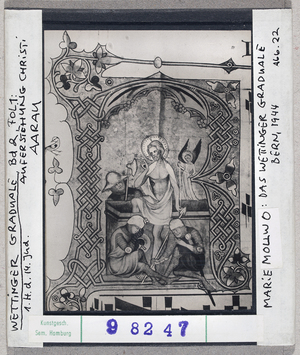 WETTINGER GRADUALE Bd. 2, FOL. 1:
AUFERSTEHUNG CHRISTI
1. H. d. 14. Jhd.
AARAU
MARIE MOLLWO: DAS WETTINGER GRADUALE
BERN, 1944
Abb. 22
Kunstgesch.
Sem. Hamburg
98247